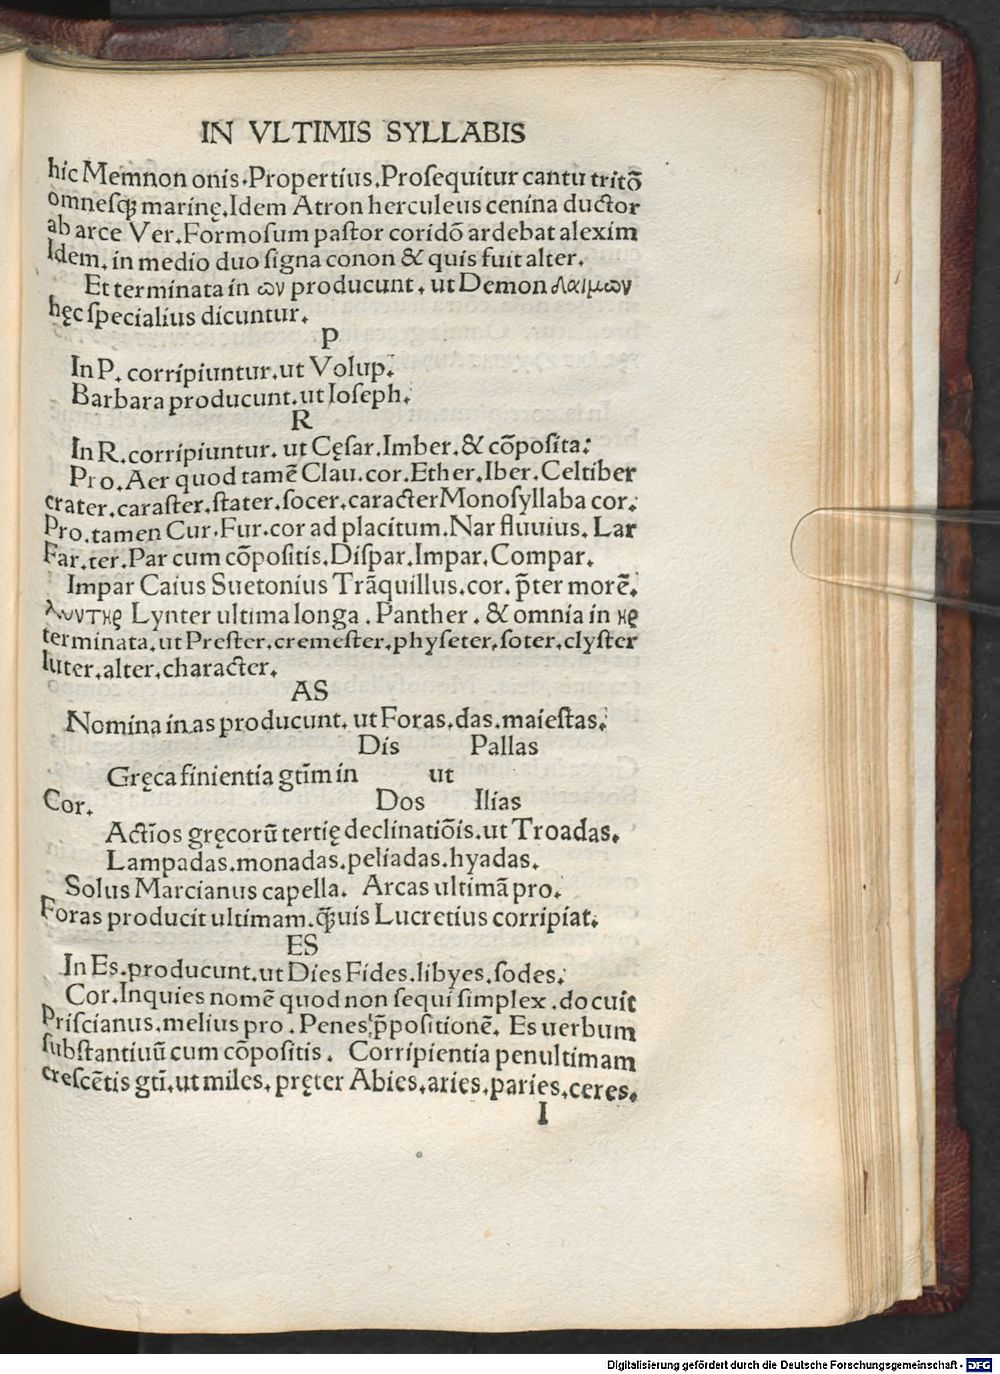 IN VLTIMIS SYLLABIS
hic Memnon onis.Propertius.Proſequitur cantu tritō
omneſqꝫ marinę.Idem Atron herculeus cenina ductor
ab arce Ver.Formoſum paſtor coridō ardebat alexim
Idem. in medio duo ſigna conon & quis fuit alter.
Et terminata in ων producunt. ut Demon δαίμων
hęc ſpecialius dicuntur.
P
In P. corripiuntur.ut Volup.
Barbara producunt.ut Ioſeph.
R
In R.corripiuntur. ut Cęſar.Imber.& cōpoſita:
Pro.Aer quod tamē Clau.cor.Ether.Iber.Celtiber
crater.caraſter.ſtater.ſocer.caracter Monoſyllaba cor.
Pro.tamen Cur.Fur.cor ad placitum.Nar fluuius. Lar
Far.ter.Par cum cōpoſitis.Diſpar.Impar.Compar.
Impar Caius Suetonius Trāquillus.cor. p̄ter morē.
λυντηρ Lynter ultima longa . Panther . & omnia in ηρ
terminata.ut Preſter.cremeſter.phyſeter.ſoter.clyſter
luter.alter.character.
AS
Nomina in.as producunt. ut Foras.das.maieſtas.
Dis Pallas
Gręca finientia gtīm in ut
Cor. Dos Ilias
Actīos gręcorū tertię declinatiōis.ut Troadas.
Lampadas.monadas.peliadas.hyadas.
Solus Marcianus capella. Arcas ultimā pro.
Foras producit ultimam.ꝙ̄uis Lucretius corripiat.
ES
In Es.producunt.ut Dies Fides.libyes.ſodes.
Cor.Inquies nomē quod non ſequi ſimplex.docuit
Priſcianus.melius pro . Penes p̄poſitionē. Es uerbum
ſubſtantiuū cum cōpoſitis. Corripientia penultimam
creſcētis gtī.ut miles. pręter Abies.aries.paries.ceres.
I
Digitalisierung gefördert durch die Deutsche Forschungsgemeinschaft - DFG